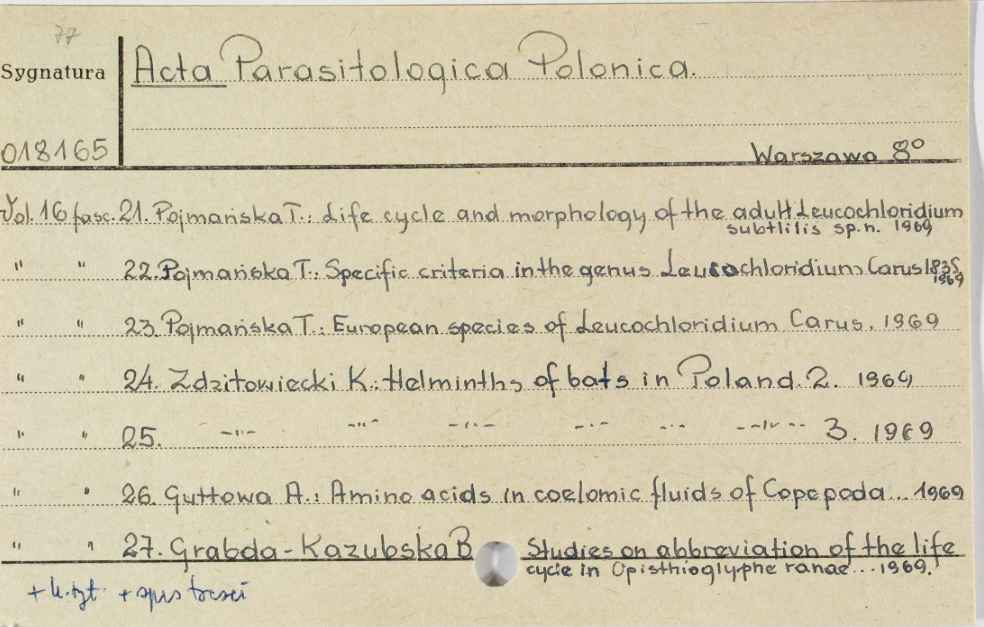 77
Sygnatura
Acta Parasitologica Polonica.
018165
Warszawa 8°
Vol. 16 fasc. 21. Pojmańska T.: Life cycle and morphology of the adult Leucochloridium
subtlilis sp.n. 1969
" " 22. Pojmańska T.: Specific criteria in the genus Leucochloridium Carus 1835,
1969
" " 23. Pojmańska T.: European species of Leucochloridium Carus. 1969
" " 24. Zdzitowiecki K.: Helminths of bats in Poland. 2. 1969
" " 25. -"- -"- -"- -"- -"- -"- 3. 1969
" " 26. Guttowa A.: Amino acids in coelomic fluids of Copepoda... 1969
" " 27. Grabda-Kazubska B Studies on abbreviation of the life
cycle in Opisthioglyphe ranae... 1969.
+ k. tyt. + spis treści